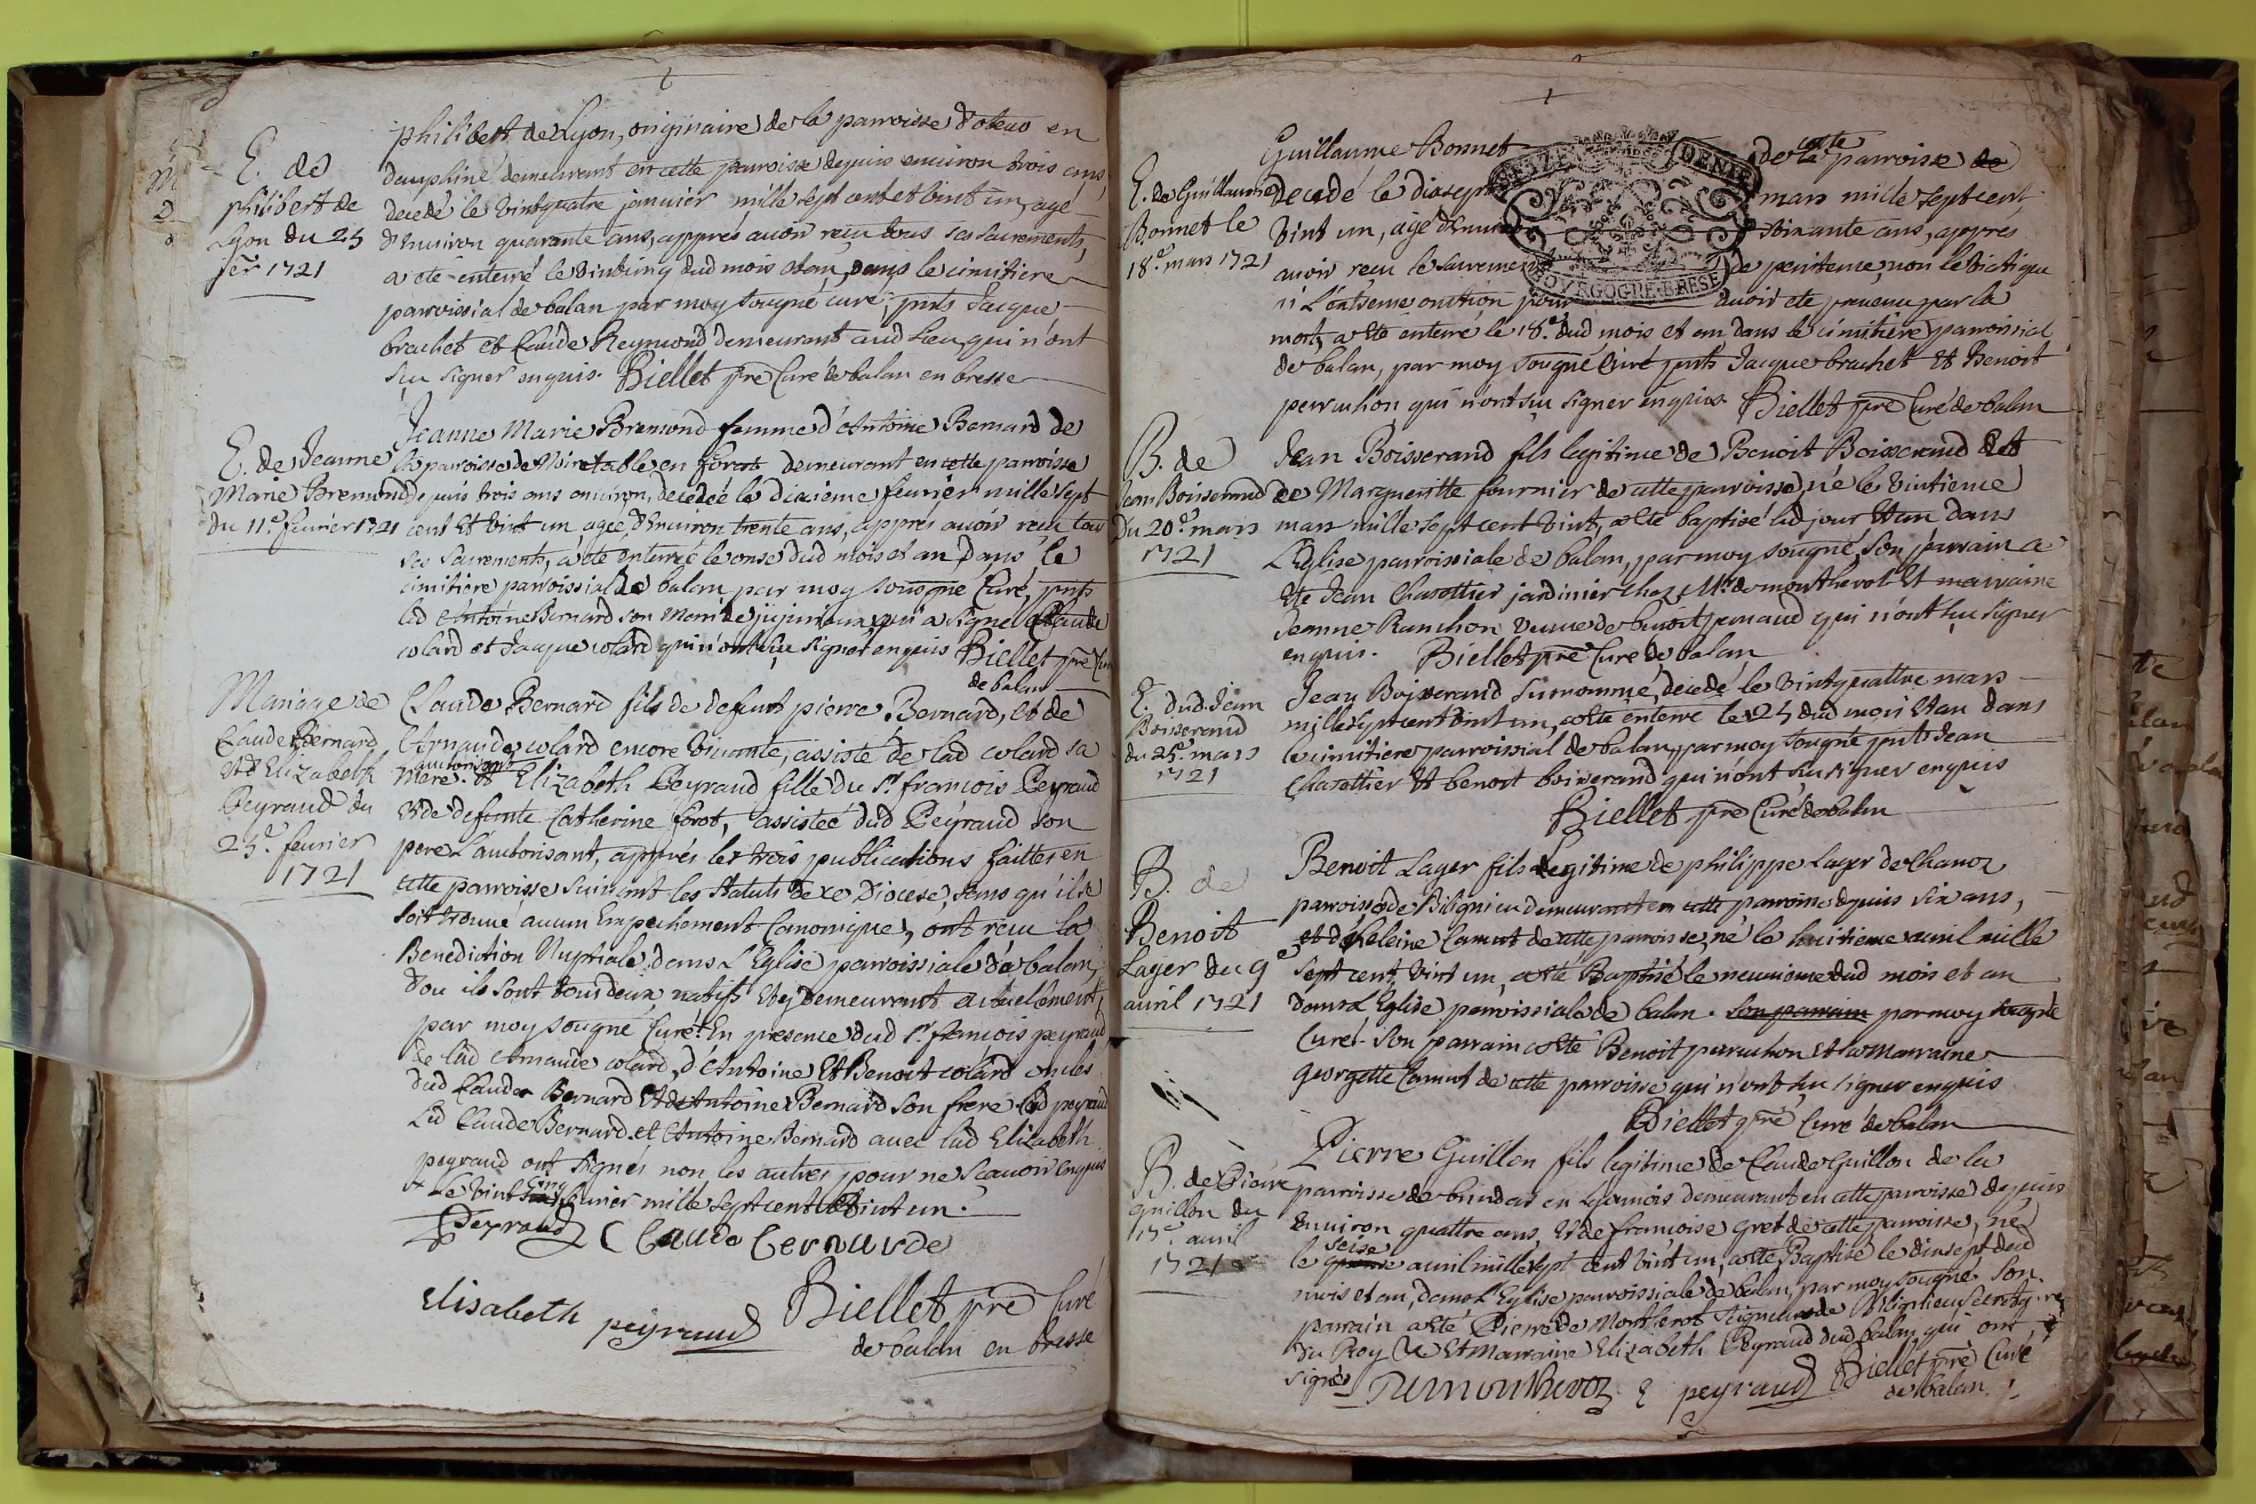 E. de
philibert de
Lyon du 25
jer 1721
philibert de Lyon, originaire de la parroisse d'oteuo en
dauphiné demeurant en cette parroisse depuis environ trois ans,
decedé le vintquatre janvier mille sept cent et vint un, agé
d'Environ quarante ans, appres avoir receu tous ses sacrements,
a eté enterré le vintcinq dud mois et an, dans le cimitiere
parroissial de balan par moy sougné curé, pnts Jacque
brachet et Claude Reymond demeurant aud lieu, qui n'ont
sçu signer enquis. Biellet pre Curé de balan en bresse
E. de Jeanne
Marie Bremond
du 11e fevrier 1721
Jeanne Marie Bremond femme d'Antoine Bernard de
la parroisse de Noiretable en forest demeurant en cette parroisse
depuis trois ans environ, decedée le dixieme fevrier mille sept
cent et vint un agée d'Environ trente ans, appres avoir receu tous
ses sacrements, a eté enterrée le onse dud mois et an dans le
cimitiere parroissial de balan par moy sousigné Curé, pnts
led Antoine Bernard son mari de jujurieux qui a signé Claude
colard et Jacque colard qui n'ont sçu signer enquis Biellet pre Cure
de balan
Mariage de
Claude Bernard
et d'Elizabeth
Peyraud du
25e fevrier
1721
Claude Bernard fils de defunt pierre Bernard, et de
Arnaude colard encore vivante, assisté de lad colard sa
mere authorisant Et Elizabeth Peyraud fille du sr francois Peyraud
et de defunte Catherine forot, assistée dud Peyraud son
pere l'authorisant, appres les trois publications faittes en
cette parroisse suivant les statuts de ce Diocese, sans qu'il se
soit trouvé aucun Empechement Canonique, ont receu la
Benediction Nuptiale dans l'Eglise parroissiale de balan,
d'ou ils sont tous deux natifs et y demeurant actuellement,
par moy sougné Curé. En presence dud sr francois peyraud
de lad Arnaude colard, d'Antoine Et Benoit colard oncles
dud Claude Bernard et de Antoine Bernard son frere led peyraud
led Claude Bernard et Antoine Bernard avec lad Elizabeth
peyraud ont signés non les autres pour ne scavoir enquis
Le vint cinq fevrier mille sept cent et vint un.
Peyraud C Claude Bernarde
elisabeth peyraud Biellet pre Curé
de balan en bresse
E. de Guillaume
Bonnet le
18e mars 1721
SEIZE DENIE
BOURGOGNE BRESE
Guillaume Bonnet de cette parroisse
decedé le dixsept mars mille sept cent
vint un, agé d'Environ soixante ans, appres
avoir receu le sacrement de penitence, non le viatique
ni l'extreme onction pour avoir eté prevenu par la
mort, a eté enterré le 18e dud mois et an dans le cimitiere parroissial
de balan, par moy sougné Curé pnts Jacque brachet Et Benoit
perruchon qui n'ont sçu signer enquis. Biellet pre Curé de balan
B. de
Jean Boisserand
Du 20e mars
1721
Jean Boisserand fils legitime de Benoit Boisserand Et
de Marguerite fournier de cette parroisse, né le vintieme
mars mille sept cent vint, a eté baptisé led jour et an dans
l'Eglise parroissiale de balan, par moy sougné, son parrain a
eté Jean Charottier jardinier chez Mr de montherot Et marraine
Jeanne Ranchon veuve de benoit junaud qui n'ont sçu signer
enquis. Biellet pre Curé de balan
E. dud Jean
Boisserand
du 25e mars
1721
Jean Boisserand surnommé, decedé le vintquattre mars
mille sept cent vint un, a eté enterré le 25 dud mois et an dans
le cimitiere parroissial de balan, par moy sougné pnts Jean
Charottier Et benoit boisserand qui n'ont sçu signer enquis
Biellet pre Curé de balan
B. de
Benoit
Lager du 9e
avril 1721
Benoit Lager fils legitime de philippe Lager de Chanoz
parroisse de Bilignieu demeurant en cette parroisse depuis six ans,
et d'heleine Camut de cette parroisse, né le huitieme avril mille
sept cent vint un, a eté Baptisé le neuvieme dud mois et an
dans l'Eglise parroissiale de balan. son parrain par moy sougné
Curé. Son parrain a eté Benoit perruchon et sa marraine
georgette Camut de cette parroisse qui n'ont sçu signer enquis
Biellet pre Curé de balan
B. de Pierre
guillon du
17e avril
1721
Pierre Guillon fils legitime de Claude Guillon de la
parroisse de brindas en Lyonnois demeurant en cette parroisse depuis
Environ quattre ans, et de francoise gret de cette parroisse, né
le quinse seise avril mille sept cent vint un, a eté Baptisé le dixsept dud
mois et an, dans l'Eglise parroissiale de balan, par moy sougné. Son
parrain a eté Pierre de Montherot seigneur de Bilignieu secretaire
du Roy Et Marraine Elizabeth Peyraud dud balan qui ont
signés Demontherot E peyraud Biellet pre Curé
de balan